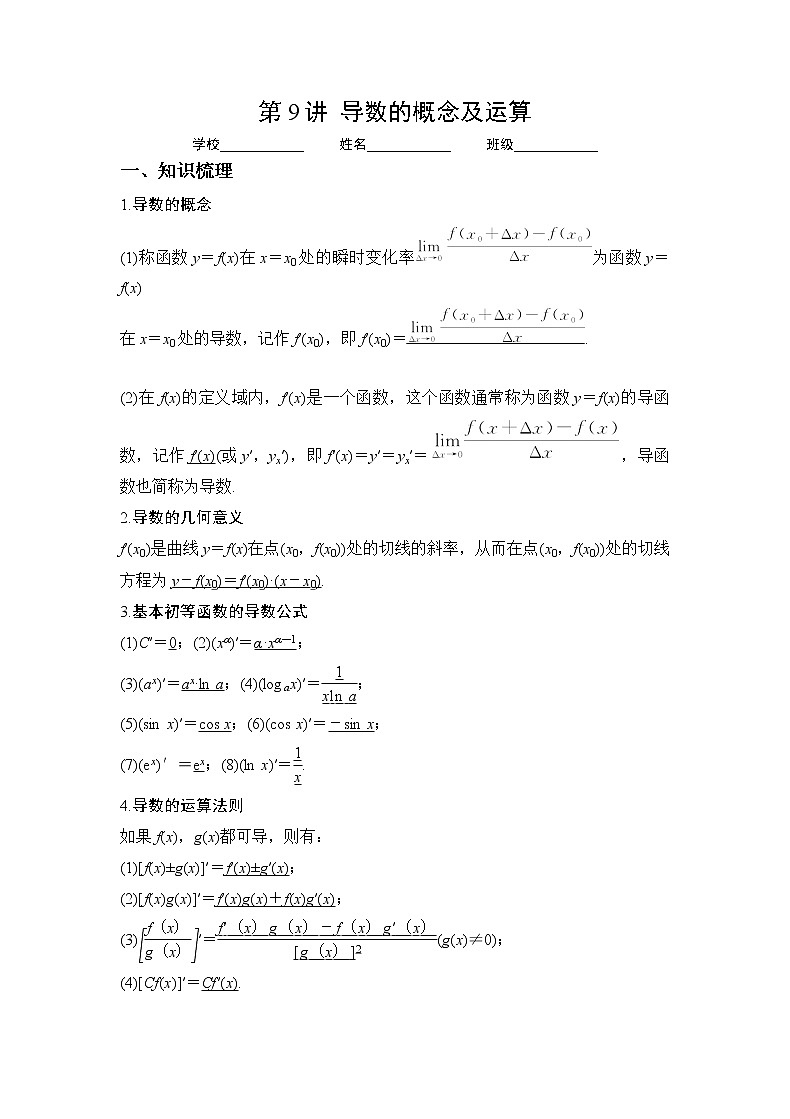 第 9 讲 导数的概念及运算
学校____________ 姓名____________ 班级____________
一、知识梳理
1.导数的概念
(1)称函数 y＝f(x)在 x＝x₀处的瞬时变化率lim(Δx→0) [f(x₀＋Δx)－f(x₀)]/Δx 为函数 y＝
f(x)
在 x＝x₀处的导数，记作 f′(x₀)，即 f′(x₀)＝lim(Δx→0) [f(x₀＋Δx)－f(x₀)]/Δx.
(2)在 f(x)的定义域内，f′(x)是一个函数，这个函数通常称为函数 y＝f(x)的导函
数，记作 f′(x)(或 y′，yₓ′)，即 f′(x)＝y′＝yₓ′＝lim(Δx→0) [f(x＋Δx)－f(x)]/Δx，导函
数也简称为导数.
2.导数的几何意义
f′(x₀)是曲线 y＝f(x)在点(x₀，f(x₀))处的切线的斜率，从而在点(x₀，f(x₀))处的切线
方程为 y－f(x₀)＝f′(x₀)·(x－x₀).
3.基本初等函数的导数公式
(1)C′＝0；(2)(x^α)′＝α·x^(α－1)；
(3)(aˣ)′＝aˣ·ln a；(4)(logₐx)′＝1/(xln a)；
(5)(sin x)′＝cos x；(6)(cos x)′＝－sin x；
(7)(eˣ)′＝eˣ；(8)(ln x)′＝1/x.
4.导数的运算法则
如果 f(x)，g(x)都可导，则有：
(1)[f(x)±g(x)]′＝f′(x)±g′(x)；
(2)[f(x)g(x)]′＝f′(x)g(x)＋f(x)g′(x)；
(3)[f（x）/g（x）]′＝[f′（x）g（x）－f（x）g′（x）]/[g（x）]²(g(x)≠0)；
(4)[Cf(x)]′＝Cf′(x).